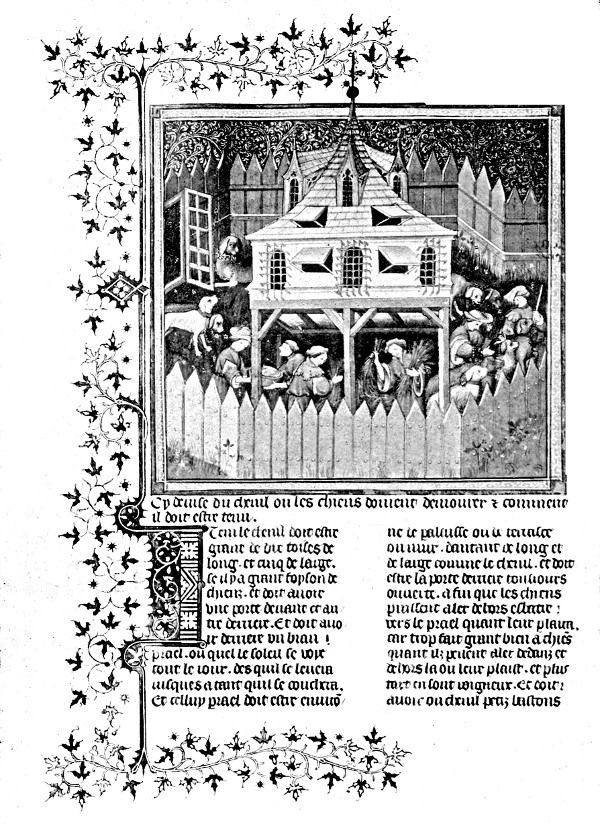 Cy devise du chenil ou les chiens doivent demourer & comment
il doit estre tenu.
Item le chenil doit estre
grant de dix toises de
long. et cinq de large.
se il ya grant foyson de
chiens. et doit avoir
une porte devant et au
tre derriere. Et doit avo
ir derriere un biau
prael. ou quel le soleil se voye
tout le jour. des quil se levera
jusques a tant quil se couchera.
Et celluy prael doit estre enviro
ne de palisse ou de terrasce
ou mur. dautant de long et
de large comme le chenil. et doit
estre la porte derriere tousiours
ouverte. a fin que les chiens
puissent aler dehors esbatre
vers le prael quant leur plaira.
car trop fait grant bien a chiens
quant ilz peuent aler dedanz et
dehors la ou leur plaist. et plus
tart en sont roigneux. Et doit
avoir ou chenil petiz bastons